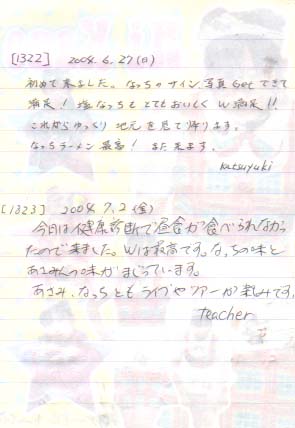 [1322] 2004. 6. 27(日)
初めて来ました。なっちのサイン、写真Getできて
満足！塩なっちもとてもおいしくW満足!!
これからゆっくり地元を見て帰ります。
なっちラーメン最高！また来ます。
katsuyuki
[1323] 2004. 7. 2(金)
今日は健康診断で昼食が食べられなかっ
たので来ました。Wは最高です。なっちの味と
あさみんの味がまじっています。
あさみ、なっちともライブやツアーが楽しみです。
teacher